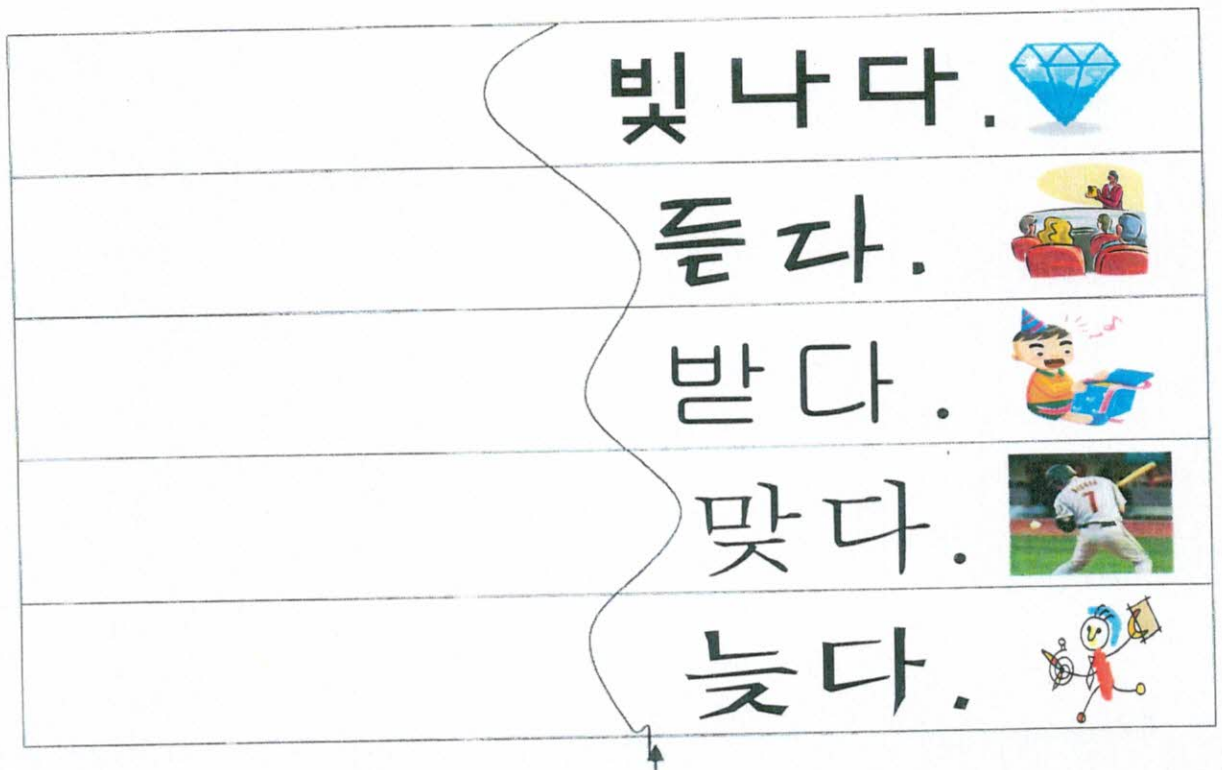 빛나다.
듣다.
받다.
7
맞다.
늦다.